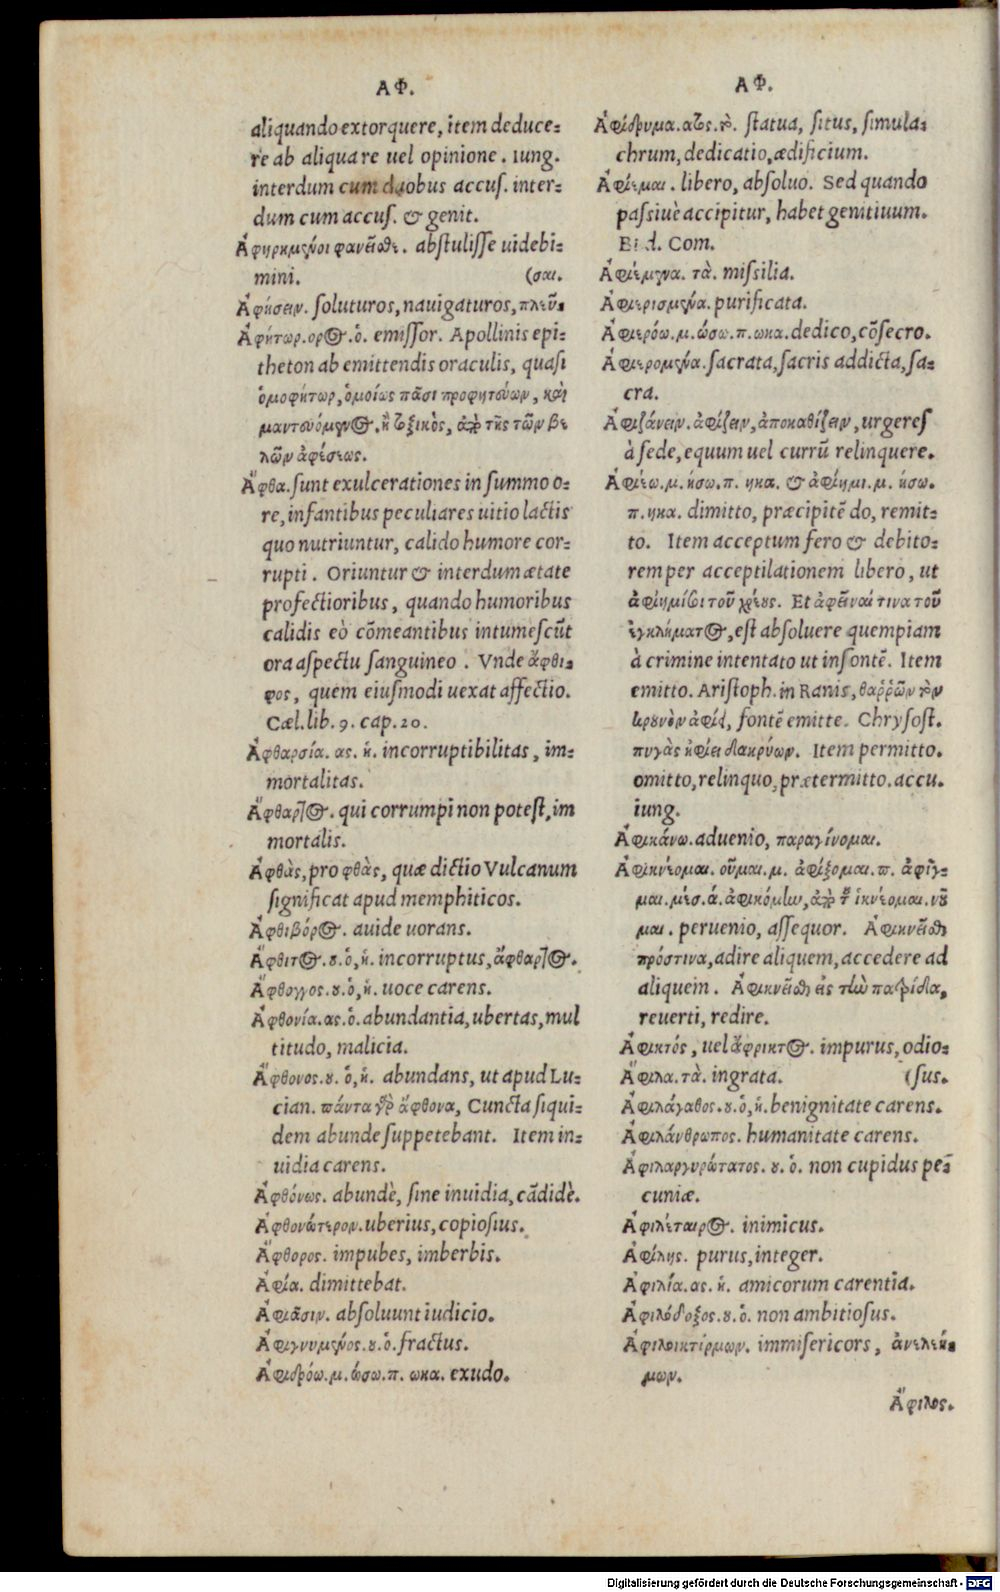 ΑΦ.
aliquando extorquere, item deduce-
re ab aliqua re uel opinione. Iung.
interdum cum duobus accuſ. inter-
dum cum accuſ. & genit.
Ἀφῃρημένοι φανεῖσθε. abſtuliſſe uidebi-
mini. (σαι.
Ἀφήσειν. ſoluturos, nauigaturos, πλεῦ-
Ἀφήτωρ. ορος. ὁ. emiſſor. Apollinis epi-
theton ab emittendis oraculis, quaſi
ὁμοφήτωρ, ὁμοίως πᾶσι προφητεύων, καὶ
μαντευόμενος. ἢ τοξικὸς, ἀπὸ τῆς τῶν βε
λῶν ἀφέσεως.
Ἄφθα. ſunt exulcerationes in ſummo o-
re, infantibus peculiares uitio lactis
quo nutriuntur, calido humore cor-
rupti. Oriuntur & interdum ætate
profectioribus, quando humoribus
calidis eò cōmeantibus intumeſcūt
ora aſpectu ſanguineo. Vnde ἄφθι-
φος, quem eiuſmodi uexat affectio.
Cæl. lib. 9. cap. 20.
Ἀφθαρσία. ας. ἡ. incorruptibilitas, im-
mortalitas.
Ἄφθαρτος. qui corrumpi non poteſt, im
mortalis.
Ἀφθὰς, pro φθὰς, quæ dictio Vulcanum
ſignificat apud memphiticos.
Ἀφθιβόρος. auide uorans.
Ἄφθιτος. ου. ὁ, ἡ. incorruptus, ἄφθαρτος.
Ἄφθογγος. ου. ὁ, ἡ. uoce carens.
Ἀφθονία. ας. ὁ. abundantia, ubertas, mul
titudo, malicia.
Ἄφθονος. ου. ὁ, ἡ. abundans, ut apud Lu-
cian. πάντα γὰρ ἄφθονα, Cuncta ſiqui-
dem abunde ſuppetebant. Item in-
uidia carens.
Ἀφθόνως. abundè, ſine inuidia, cādidè.
Ἀφθονώτερον. uberius, copioſius.
Ἄφθορος. impubes, imberbis.
Ἀφία. dimittebat.
Ἀφιᾶσιν. abſoluunt iudicio.
Ἀφιγνυμένος. ου. ὁ. fractus.
Ἀφιδρόω. μ. ώσω. π. ωκα. exudo.
ΑΦ.
Ἀφίδρυμα. ατος. τὸ. ſtatua, ſitus, ſimula-
chrum, dedicatio, ædificium.
Ἀφίεμαι. libero, abſoluo. Sed quando
paſsiuè accipitur, habet genitiuum.
Bud. Com.
Ἀφιέμενα. τὰ. miſsilia.
Ἀφιερισμένα. purificata.
Ἀφιερόω. μ. ώσω. π. ωκα. dedico, cōſecro.
Ἀφιερομένα. ſacrata, ſacris addicta, ſa-
cra.
Ἀφιζάνειν. ἀφίζειν, ἀποκαθίζειν, urgereſ
à ſede, equum uel currū relinquere.
Ἀφιέω. μ. ήσω. π. ηκα. & ἀφίημι. μ. ήσω.
π. ηκα. dimitto, præcipitē do, remit-
to. Item acceptum fero & debito-
rem per acceptilationem libero, ut
ἀφίημί σοι τοῦ χρέους. Et ἀφεῖναί τινα τοῦ
ἐγκλήματος, eſt abſoluere quempiam
à crimine intentato ut inſontē. Item
emitto. Ariſtoph. in Ranis, θαῤῥῶν τὸν
κρουνὸν ἀφίει, fontē emitte. Chryſoſt.
πηγὰς ἠφίει δακρύων. Item permitto.
omitto, relinquo, prætermitto. accu.
iung.
Ἀφικάνω. aduenio, παραγίνομαι.
Ἀφικνέομαι. οῦμαι. μ. ἀφίξομαι. π. ἀφῖγ-
μαι. μέσ. ά. ἀφικόμην, ἀπὸ τοῦ ἱκνέομαι. νοῦ
μαι. peruenio, aſſequor. Ἀφικνεῖσθαι
πρόστινα, adire aliquem, accedere ad
aliquem. Ἀφικνεῖσθαι εἰς τὴν πατρίδα,
reuerti, redire.
Ἀφικτός, uel ἄφρικτος. impurus, odio-
Ἄφιλα. τὰ. ingrata. (ſus.
Ἀφιλάγαθος. ου. ὁ, ἡ. benignitate carens.
Ἀφιλάνθρωπος. humanitate carens.
Ἀφιλαργυρώτατος. ου. ὁ. non cupidus pe-
cuniæ.
Ἀφιλέταιρος. inimicus.
Ἀφίλης. purus, integer.
Ἀφιλία. ας. ἡ. amicorum carentia.
Ἀφιλόδοξος. ου. ὁ. non ambitioſus.
Ἀφιλοικτίρμων. immiſericors, ἀνελεή-
μων.
Ἄφιλος.
Digitalisierung gefördert durch die Deutsche Forschungsgemeinschaft - DFG